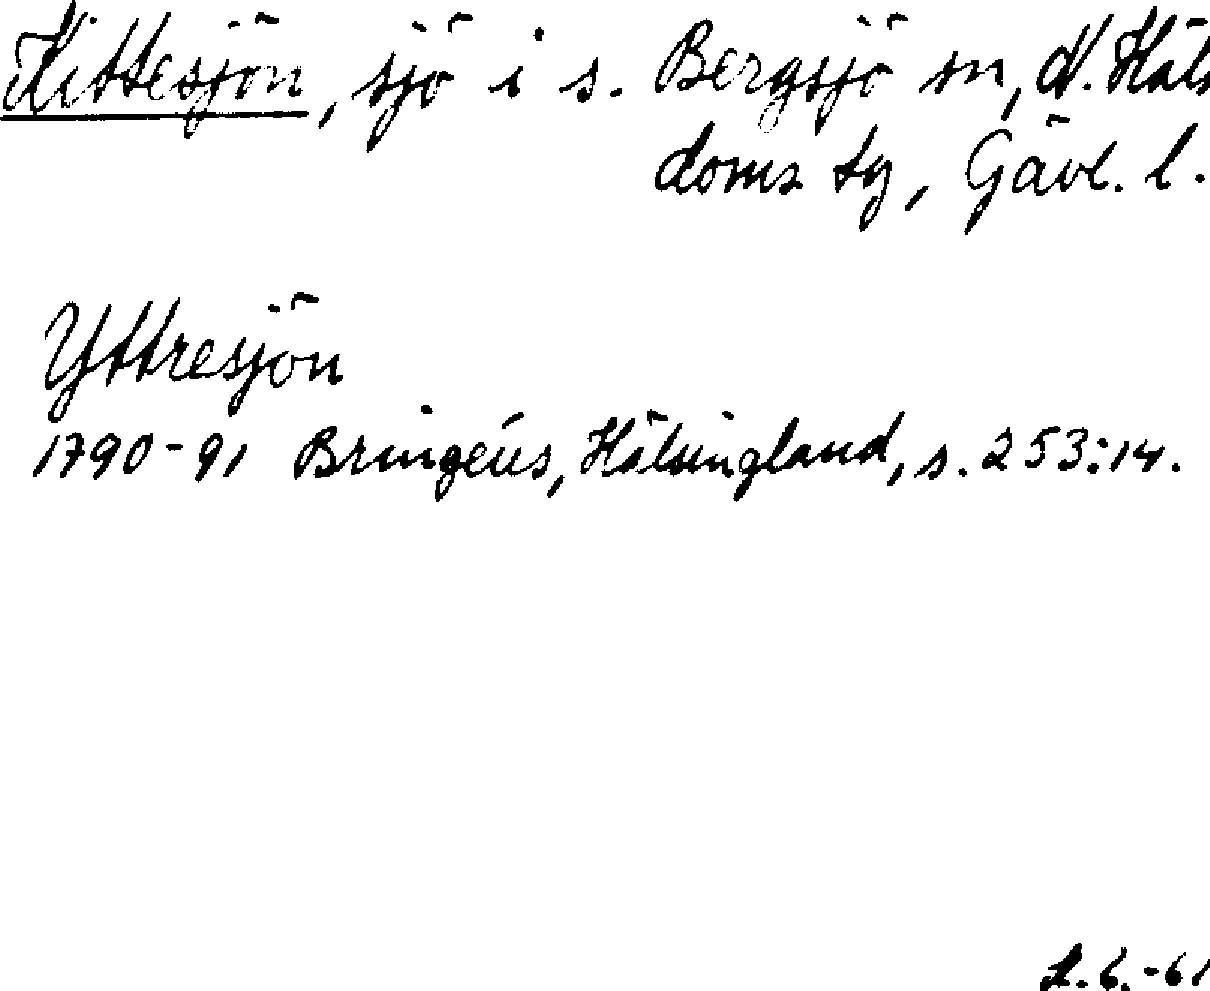 Kittesjön, sjö i s. Bergsjö sn, N. Häls
doms sg, Gävl. l.
Yttresjön
1790-91 Bringéus, Hälsingland, s. 253:14.
L. 6.-61